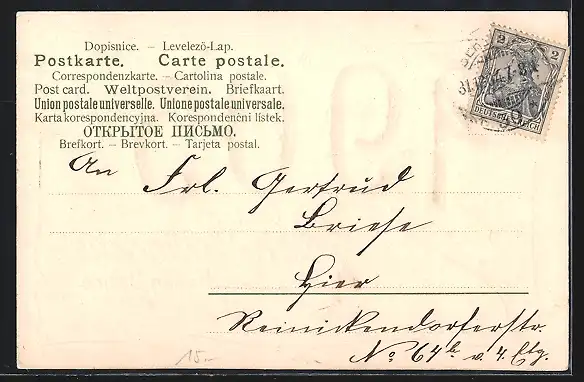 Dopisnice. – Levelezõ-Lap.
Postkarte. Carte postale.
Correspondenzkarte. – Cartolina postale.
Post card. Weltpostverein. Briefkaart.
Union postale universelle. Unione postale universale.
Karta korespondencyjna. Korespondenční lístek.
ОТКРЫТОЕ ПИСЬМО.
Brefkort. – Brevkort. – Tarjeta postal.
2 2
DEUTSCHES REICH
An Frl. Gertrud
Briese
Hier
Reinickendorferstr.
No 64b v. 4. Etg.
15.–